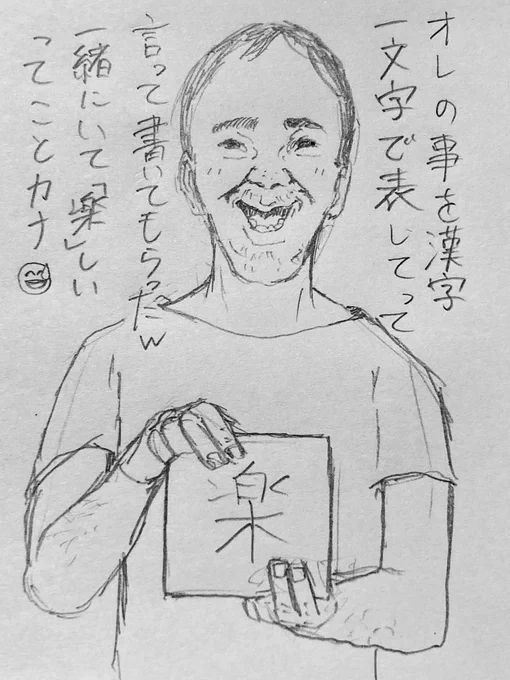 オレの事を漢字
一文字で表してって
言って書いてもらったw
一緒にいて「楽」しい
ってことカナ😄
楽